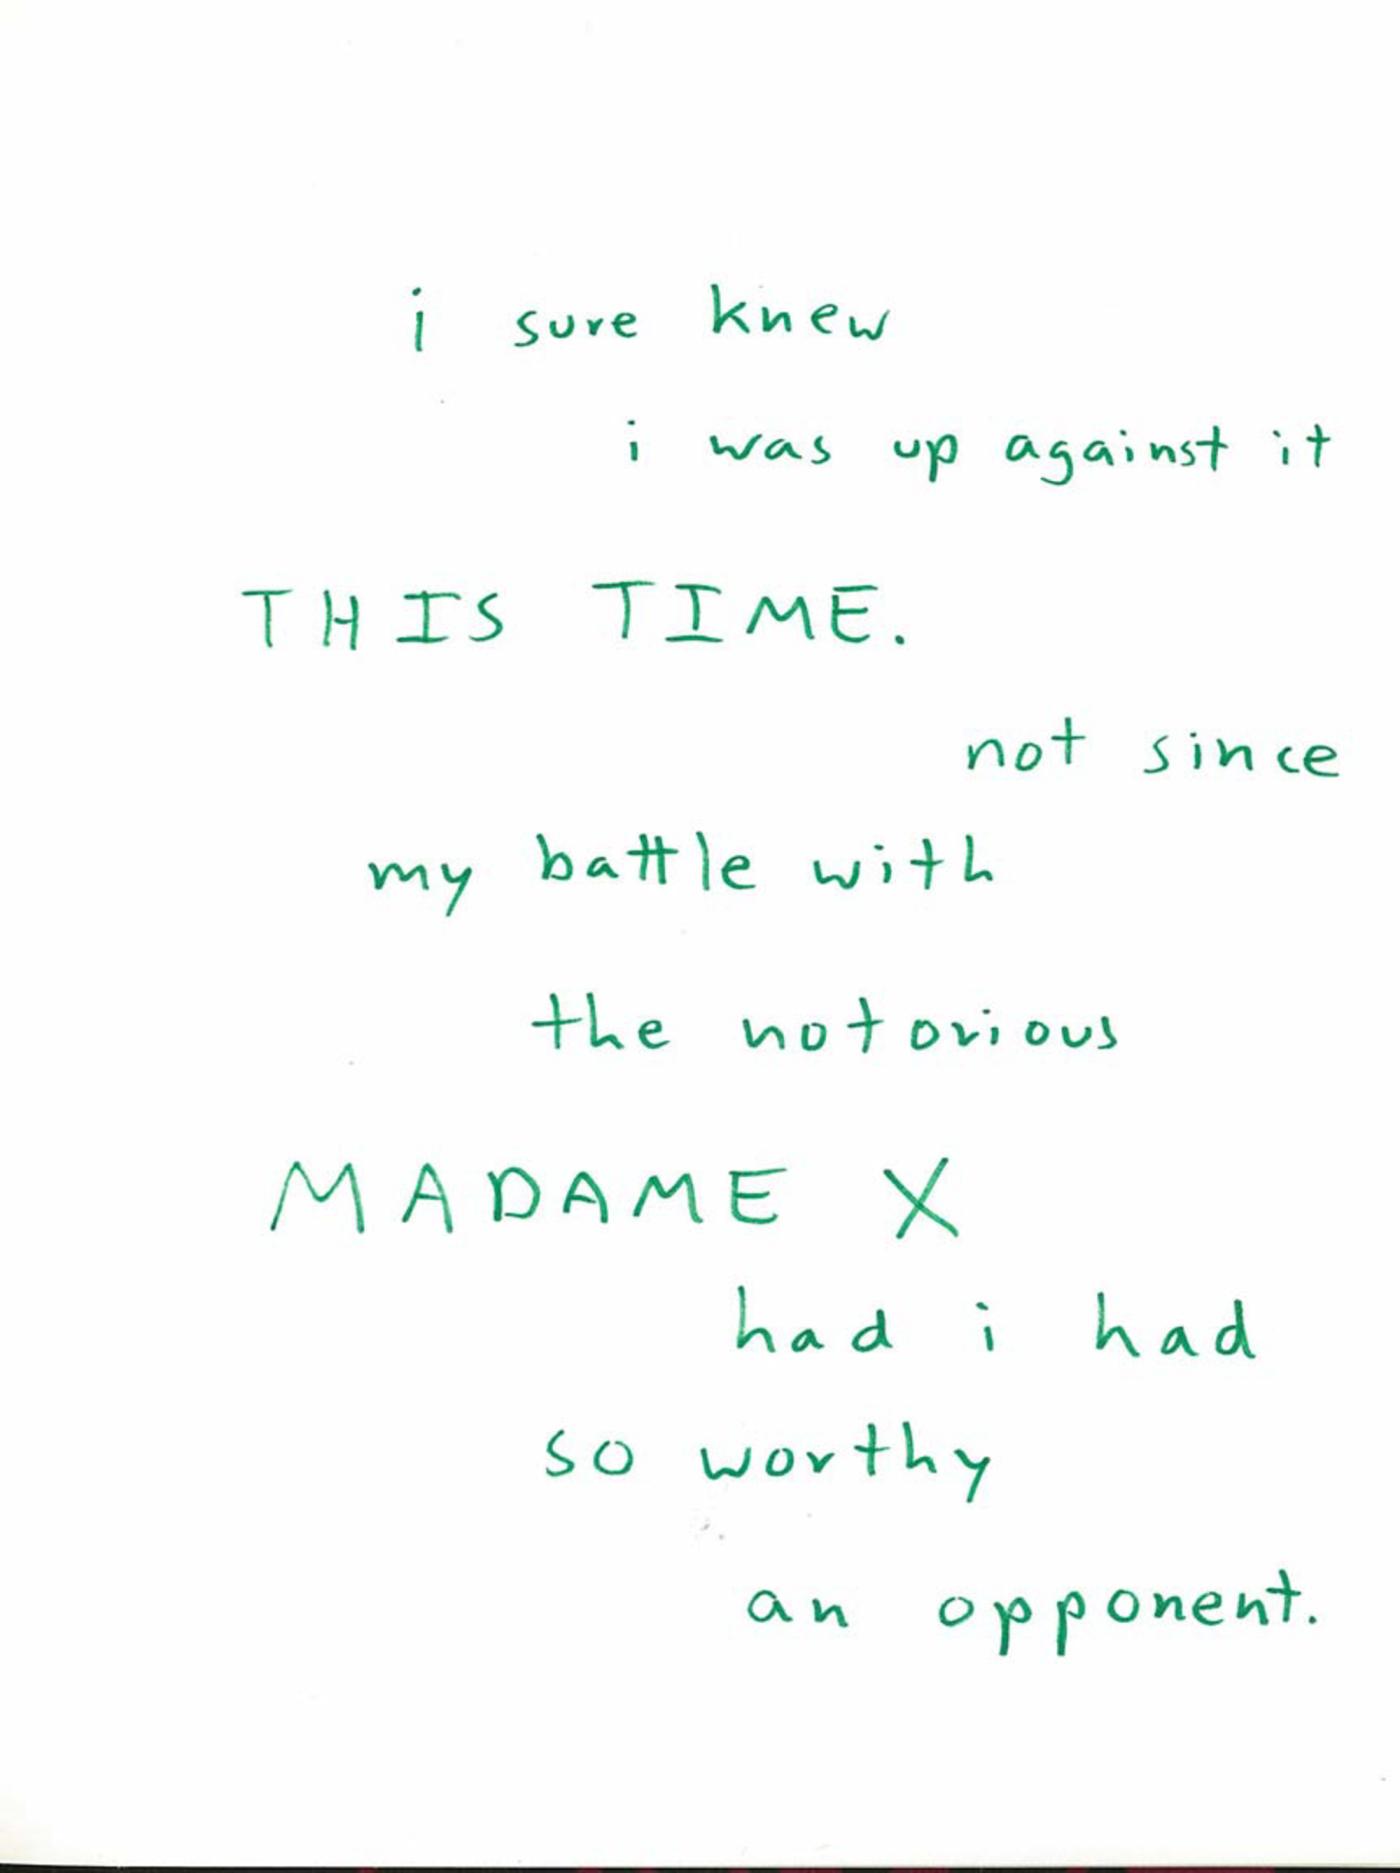 i sure knew
i was up against it
THIS TIME.
not since
my battle with
the notorious
MADAME X
had i had
so worthy
an opponent.